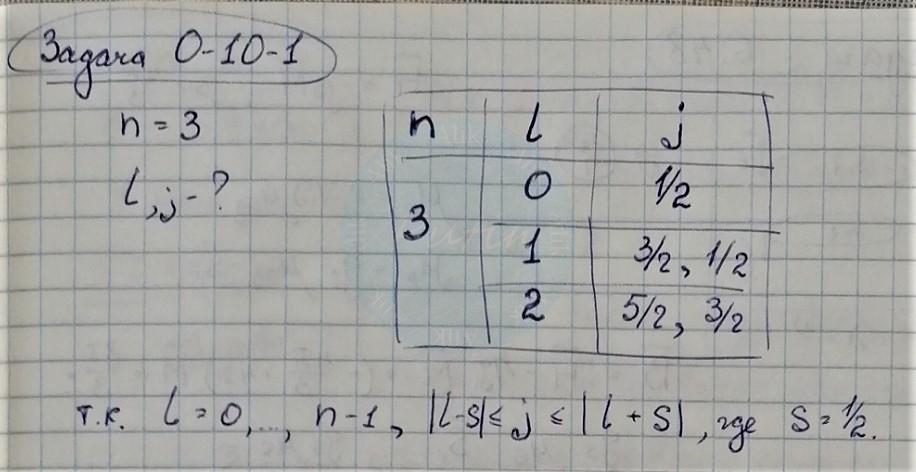 Задача 0-10-1
n = 3
l, j - ?
n l j
3
0 1/2
1 3/2, 1/2
2 5/2, 3/2
т.к. l = 0, ..., n-1, |l-s| ≤ j ≤ |l + s|, где s = 1/2.